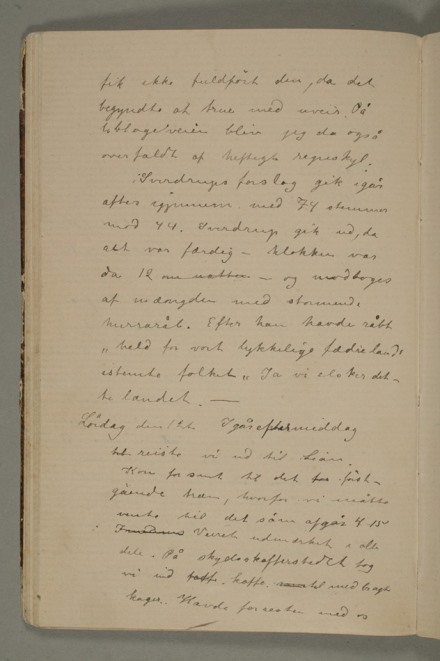 fik ikke fuldført den, da det
begyndte at true med uveir. På
tilbageveien blev jeg da også
overfaldt af heftigt regnskyl.
Sverdrups forslag gik igår
aften igjennem med 74 stemmer
mod 44. Sverdrup gik ud, da
alt var færdig – klokken var
da 12 om natten – og modtoges
af mængden med stormende
hurraråb. Efter han havde råbt
„held for vort lykkelige fædreland"
istemte folket „Ja vi elsker det-
te landet. —
Lördag den 12te Igåreftermiddag
reiste vi ud til Lian.
Kom for sent til det først-
gående træn, hvorfor vi måtte
vente til det som afgår 4.15
Veiret udmærket i alle
dele. På skydsskafferstedet tog
vi ind kaffe til medbragte
kager. Havde forresten med os